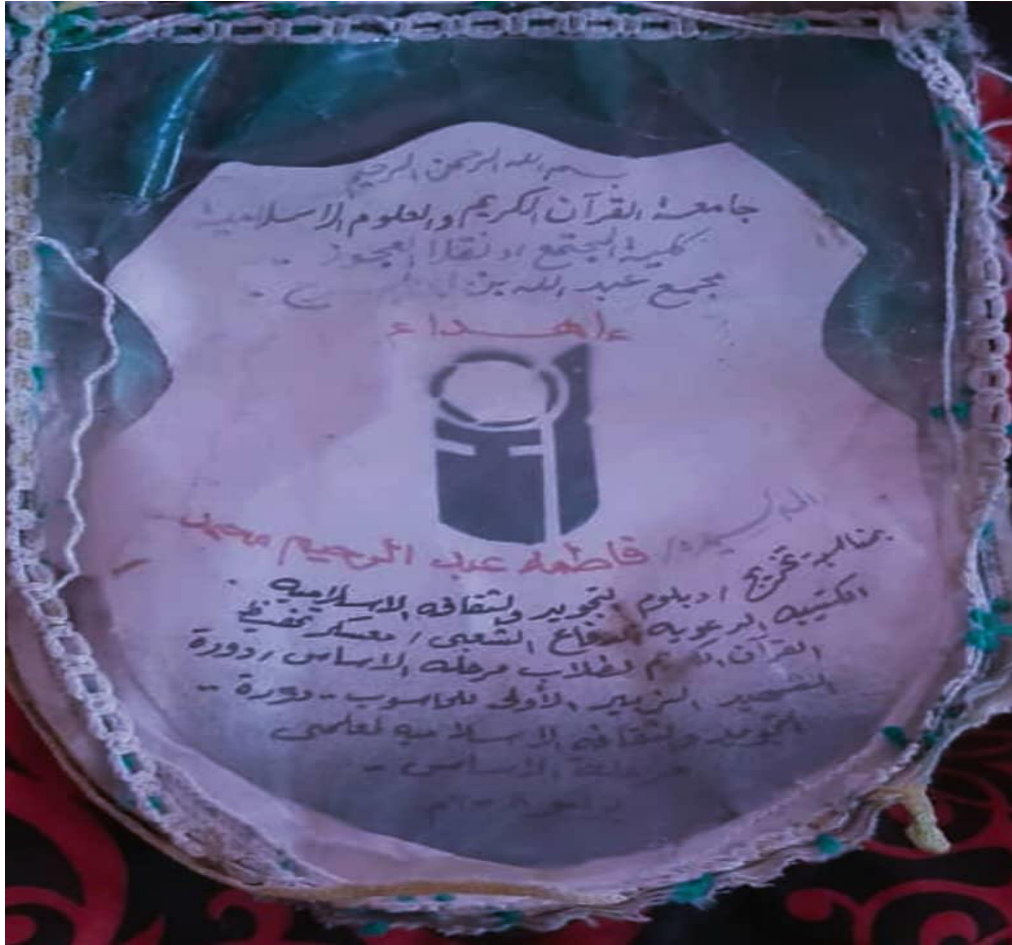 بسم الله الرحمن الرحيم
جامعة القرآن الكريم والعلوم الاسلامية
كلية المجتمع / دنقلا العجوز
مجمع عبد الله بن
إهداء
فاطمه عبد الرحيم محمد
بمناسبة تخريج / دبلوم التجويد والثقافه الاسلاميه
الكتيبه الدعويه الدفاع الشعبي / معسكر تحفيظ
القرآن الكريم لطلاب مرحله الاساس / دورة
الشهيد الزبير الأولى للحاسوب - دورة
التجويد والثقافه الاسلاميه لمعلمي
مرحلة الاساس